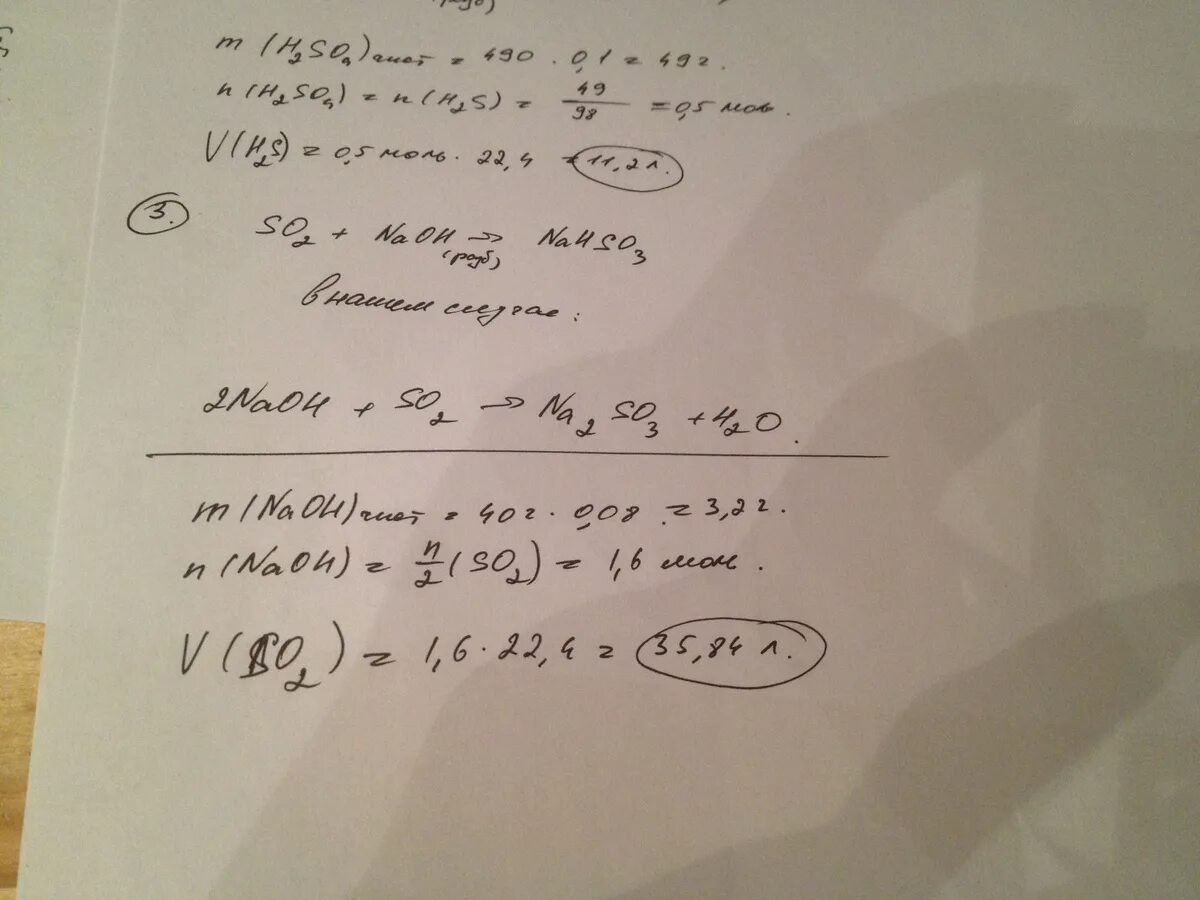 m (H₂SO₄) чист = 490 · 0,1 = 49 г.
n (H₂SO₄) = n (H₂S) = 49/98 = 0,5 моль.
V (H₂S) = 0,5 моль · 22,4 = 11,2 л.
3.
SO₂ + NaOH → NaHSO₃
(разб)
в нашем случае:
2NaOH + SO₂ → Na₂SO₃ + H₂O.
m (NaOH) чист = 40 г · 0,08 = 3,2 г.
n (NaOH) = n/2 (SO₂) = 1,6 мол.
V (SO₂) = 1,6 · 22,4 = 35,84 л.